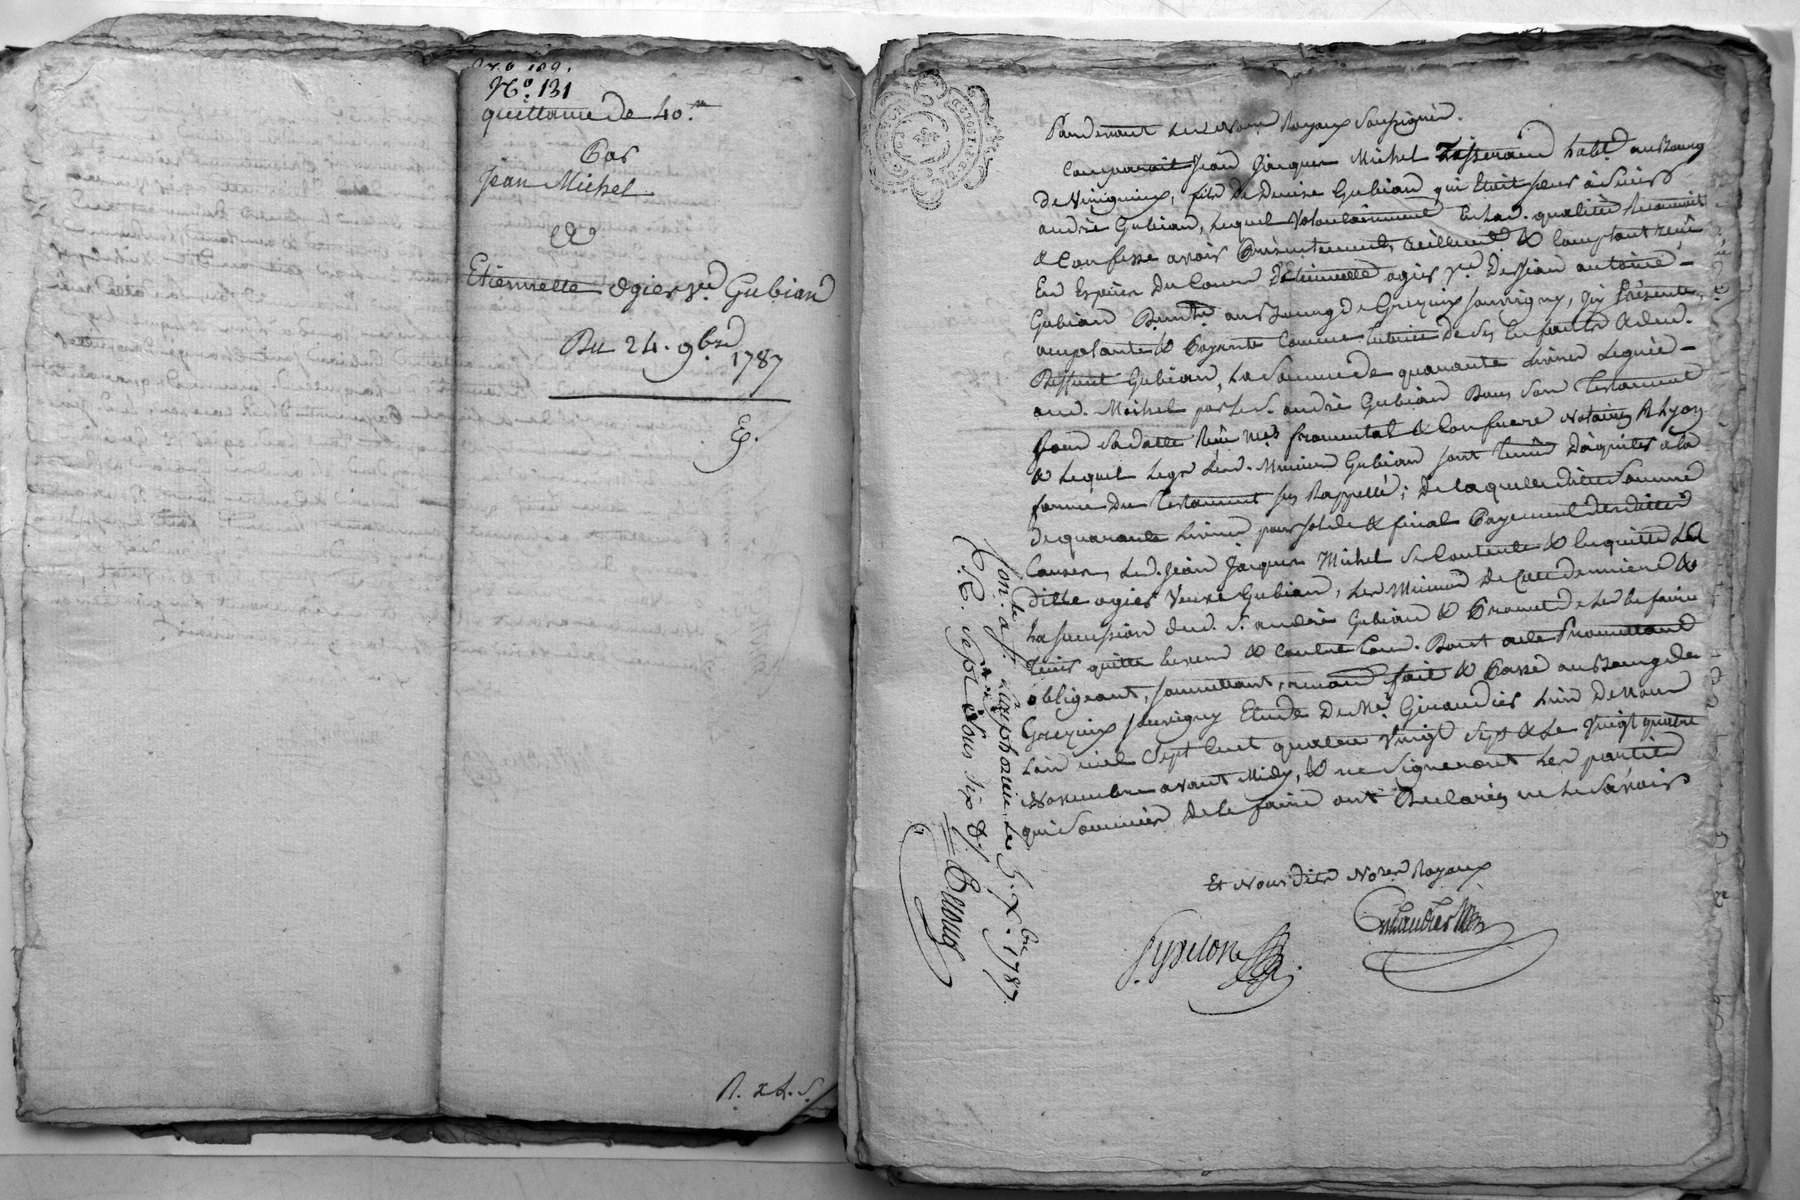 No. 131
quittance de 40.tt
Par
Jean Michel
à
Etiennette ogier ve. Gubian
Du 24. 9bre
1787
E.
R. x L. S.
Pardevant les Nores. Royaux soussignés.
Comparait Jean Jacques Michel habt. au Bourg
de fils de Denise Gubian, qui Etoit sœur à Sieur
andré Gubian, lequel volontairement En lad. qualité Reconnoit
& Confesse avoir présentement, réellement & Comptant reçu
En Espèces du Cours d'Etiennette ogier ve. De Jean antoine
Gubian au Bourg de Grezieux souvigny, icy présente,
acceptante & payante Comme tutrice de ses Enfants & dud.
Deffunt Gubian, la Somme de quarante Livres Leguée
aud. Michel par le S. andré Gubian Dans son Testament
sous sa datte Reçu Mes. fromental & Confrere Notaires à Lyon
& Lequel Legs Lesd. Mineurs Gubian sont tenus D'aquiter à la
forme du Testament sus Rappellé; De laquelle ditte Somme
de quarante Livres pour solde & final payement desdittes
Causes, Led. Jean Jacques Michel se Contente & En quitte La
ditte ogier Veuve Gubian, les Mineurs De Cette derniere &
La succession dud. S. andré Gubian & Promet de les En faire
tenir quitte Envers & Contre tous. Dont acte Promettant
obligeant, soumettant, renonç fait & Passé au Bourg de
Grezieux souvigny Etude De Me. Giraudier L'un De Nous
L'an mil Sept Cent quatre Vingt Sept & Le Vingt quatre
Novembre avant Midy, & ne signeront Les parties
qui Sommées De le faire ont Declarés ne Le Sçavoir
Et Nous Dits Nores. Royaux
Giraudier
Con.lé à St. simphorien Le 5. Xbre. 1787.
R. sept Sous six Ds